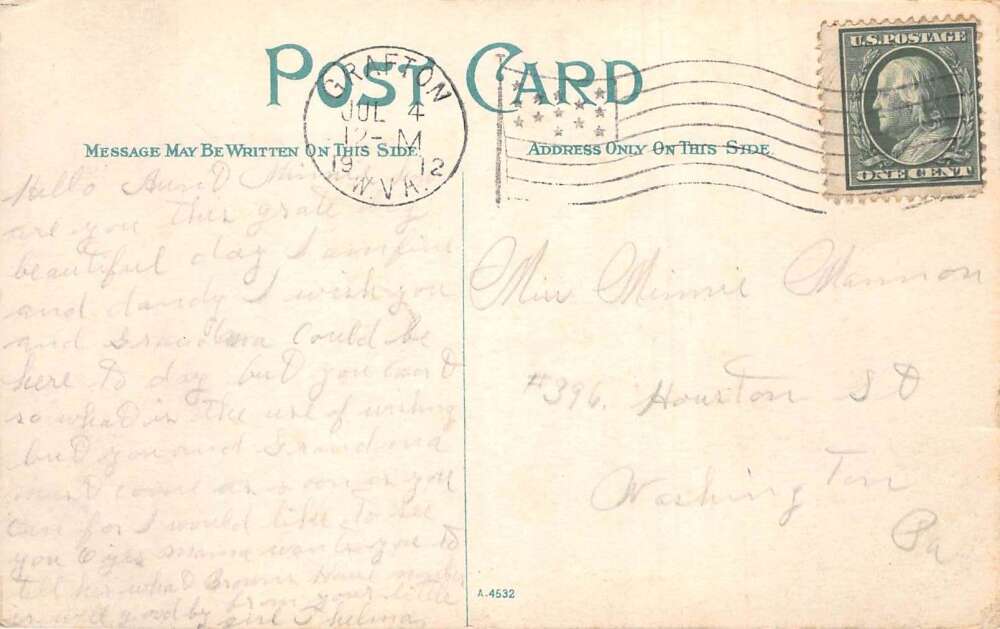 POST CARD
GRAFTON
JUL 4
12-M
19 12
W.VA.
U.S.POSTAGE
ONE CENT
MESSAGE MAY BE WRITTEN ON THIS SIDE
ADDRESS ONLY ON THIS SIDE
Hello Aunt Minnie
are you this grate
beautiful day I am fine
and dandy I wish you
and Grandma could be
here to day but you can't
so what is the use of wishing
but you and Grandma
must come as soon as you
can for I would like to see
you mama wants you to
tell her what Browns House number
is well good by from your little
girl Thelma
Miss Minnie Mannon
#396. Houston St
Washington
Pa
A.4532